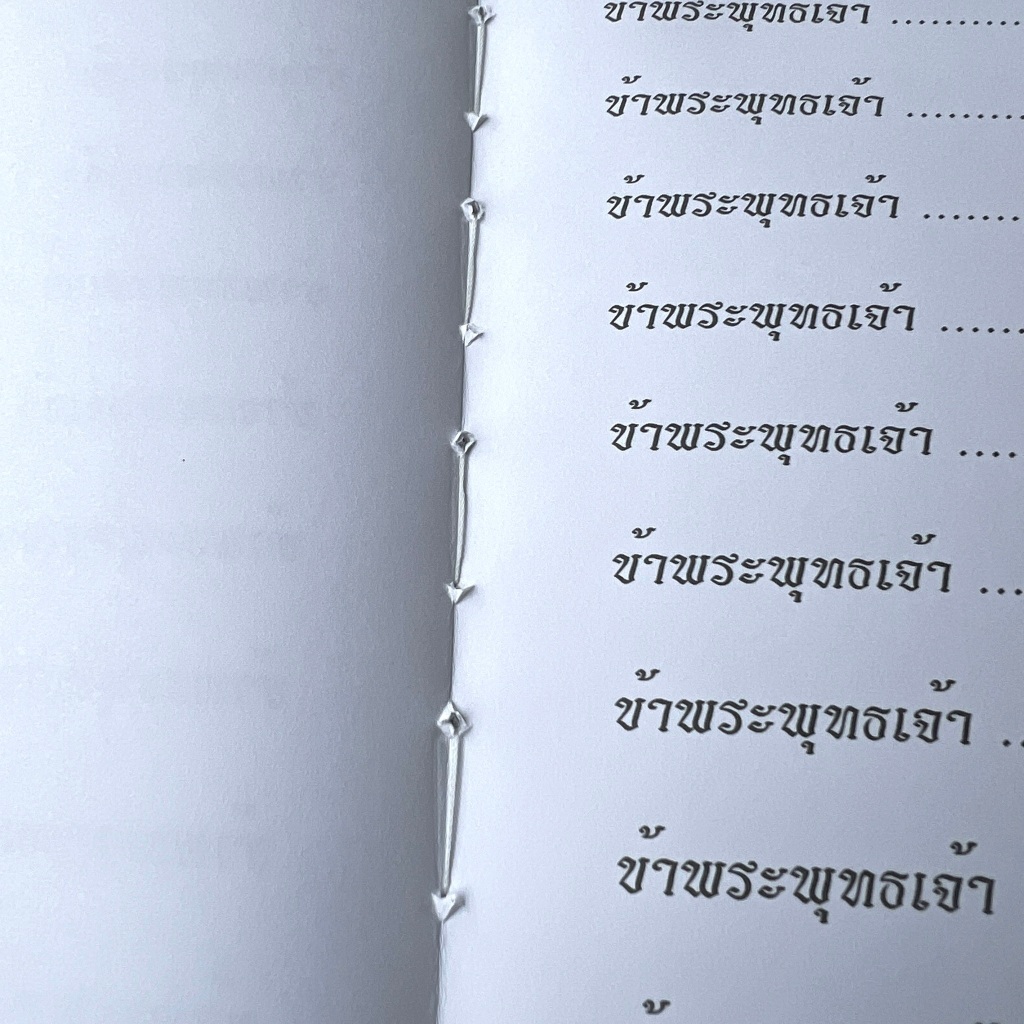 ข้าพระพุทธเจ้า ..........
ข้าพระพุทธเจ้า .........
ข้าพระพุทธเจ้า .......
ข้าพระพุทธเจ้า ......
ข้าพระพุทธเจ้า ....
ข้าพระพุทธเจ้า ...
ข้าพระพุทธเจ้า ..
ข้าพระพุทธเจ้า